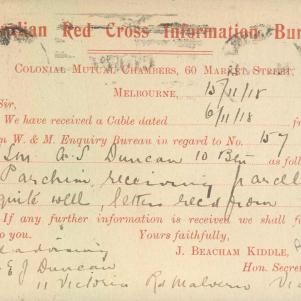 alian Red Cross Information Bu
COLONIAL MUTUAL CHAMBERS, 60 MARKET STREET,
MELBOURNE, 15/11/18
Sir,
We have received a Cable dated 6/11/18 f
n W. & M. Enquiry Bureau in regard to No. 157
A. S. Duncan 10 Bn as follo
Parchim, receiving parcel
quite well, letters recd from
If any further information is received we shall fo
to you. Yours faithfully,
J. BEACHAM KIDDLE,
Hon. Secre
E J Duncan
11 Victoria Rd Malvern Vic